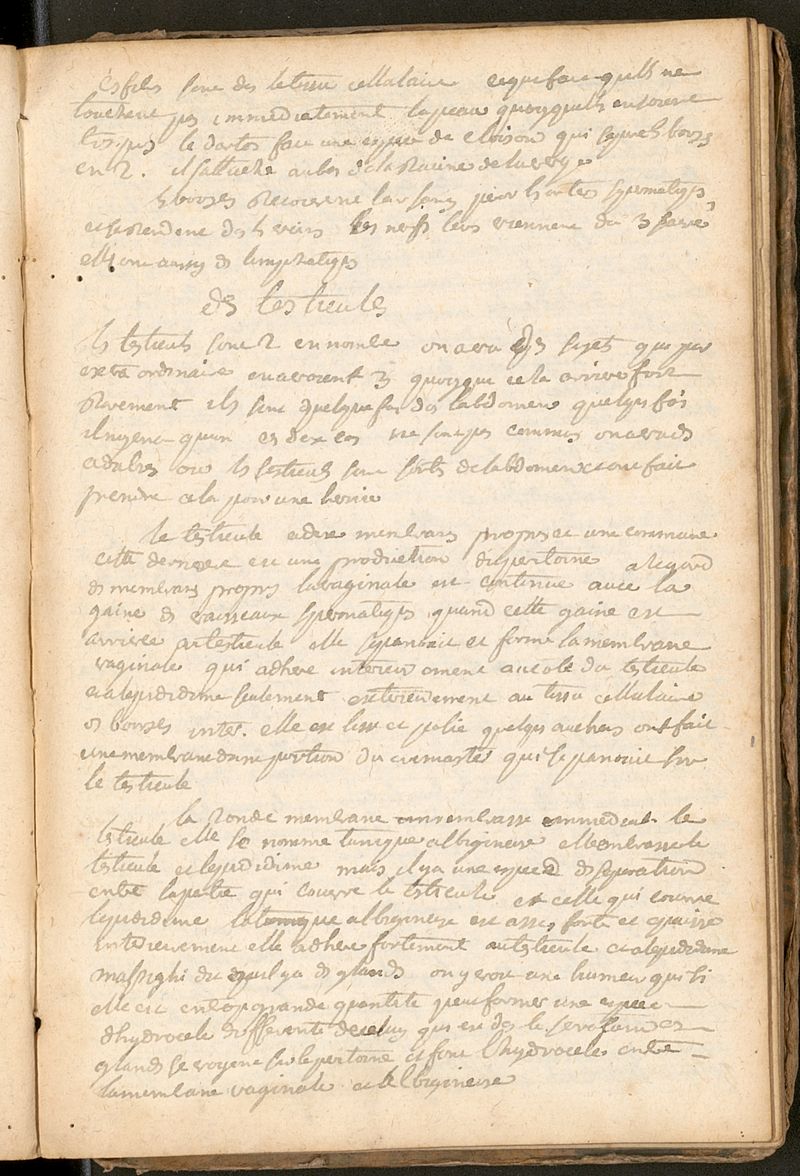 ces fils sont ds le tissu cellulaire ce qui fait quells ne
touchent pas immediatement la peau quoyquells
le dartos fait une espece de cloison qui separe ls bourss
en 2. il sattache au bas de la Racine de la verge
ls bourses Recoivent leur sang par ls arters spermatiqs
et se Rendent ds ls veins les nerfs leurs viennent du 3 sacré
ells ont aussy ds limphatiqs
ds testicules
ls testiculs sont 2 en nombre on a vu ds sujets qui par
extraordinaire en avoient 3 quoyque cela arrive fort
Rarement ils sont quelquefois ds labdomen quelqsfois
il ny en a quun ces deux cas ne sont pas communs on a vu ds
adultes ou ls testiculs sont sortis de labdomen et ont fait
prendre cela pour une hernie
le testicule a deux membrans propres et une commune
cette derniere est une production du peritoine a legard
ds membrans proprs la vaginale est continue avec la
gaine ds vaisseaux spermatiqs quand cette gaine est
arrivée au testicule elle sepanouit et forme la membrane
vaginale qui adhere interieurement a coté du testicule
et a lepididime seulement exterieurement au tissu cellulaire
ds bourses inter. elle est lisse et polie quelqs autheurs ont fait
une membrane dune portion du cremaster qui sepanouit sur
le testicule
la 2onde membrane embrasse immediat. le
testicule elle se nomme tunique albigineuse elle embrasse le
testicule et lepididime mais il y a une espece de separation
entre la partie qui couvre le testicule et celle qui couvre
lepididime la tunique albigineuse est assés forte et epaisse
interieurement elle adhere fortement au testicule et a lepididime
malpighi dit quil y a ds glands on y voit une humeur qui si
elle est en trop grande quantité peut former une espece
dhydrocele differente de celuy qui est ds le scrotum cs
glands se voyent sur le peritoine et font lhydrocele entre
la membrane vaginale et lalbigineuse